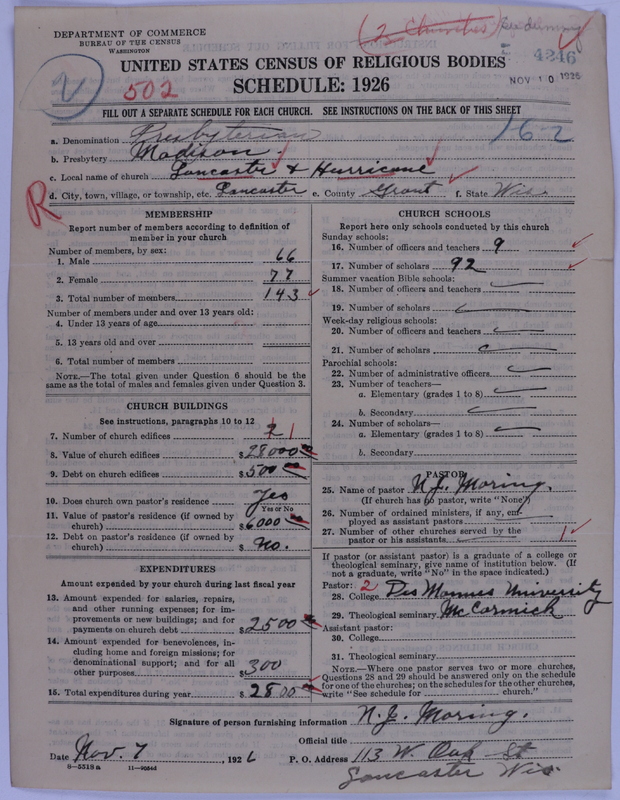 DEPARTMENT OF COMMERCE
BUREAU OF THE CENSUS
WASHINGTON
(2 Churches)
4246
NOV 10 1926
UNITED STATES CENSUS OF RELIGIOUS BODIES
SCHEDULE: 1926
502
FILL OUT A SEPARATE SCHEDULE FOR EACH CHURCH. SEE INSTRUCTIONS ON THE BACK OF THIS SHEET
162
a. Denomination Presbyterian
b. Presbytery Madison
c. Local name of church Lancaster & Hurricane
d. City, town, village, or township, etc. Lancaster e. County Grant f. State Wis
R
MEMBERSHIP
Report number of members according to definition of
member in your church
Number of members, by sex:
1. Male 66
2. Female 77
3. Total number of members 143
Number of members under and over 13 years old:
4. Under 13 years of age
5. 13 years old and over
6. Total number of members
NOTE.—The total given under Question 6 should be the
same as the total of males and females given under Question 3.
CHURCH BUILDINGS
See instructions, paragraphs 10 to 12
7. Number of church edifices 2 1
8. Value of church edifices $28000
9. Debt on church edifices $500
10. Does church own pastor's residence Yes
Yes or No
11. Value of pastor's residence (if owned by
church) $6000
12. Debt on pastor's residence (if owned by
church) $ No.
EXPENDITURES
Amount expended by your church during last fiscal year
13. Amount expended for salaries, repairs,
and other running expenses; for im-
provements or new buildings; and for
payments on church debt $2500
14. Amount expended for benevolences, in-
cluding home and foreign missions; for
denominational support; and for all
other purposes $300
15. Total expenditures during year $2800
CHURCH SCHOOLS
Report here only schools conducted by this church
Sunday schools:
16. Number of officers and teachers 9
17. Number of scholars 92
Summer vacation Bible schools:
18. Number of officers and teachers
19. Number of scholars
Week-day religious schools:
20. Number of officers and teachers
21. Number of scholars
Parochial schools:
22. Number of administrative officers
23. Number of teachers—
a. Elementary (grades 1 to 8)
b. Secondary
24. Number of scholars—
a. Elementary (grades 1 to 8)
b. Secondary
PASTOR
25. Name of pastor N.J. Moring.
(If church has no pastor, write "None")
26. Number of ordained ministers, if any, em-
ployed as assistant pastors
27. Number of other churches served by the
pastor or his assistants 1
If pastor (or assistant pastor) is a graduate of a college or
theological seminary, give name of institution below. (If
not a graduate, write "No" in the space indicated.)
Pastor: 2
28. College Des Moines University
29. Theological seminary McCormick
Assistant pastor:
30. College
31. Theological seminary
NOTE.—Where one pastor serves two or more churches,
Questions 28 and 29 should be answered only on the schedule
for one of the churches; on the schedules for the other churches,
write "See schedule for church."
Signature of person furnishing information N.J. Moring.
Official title
Date Nov. 7, 1926 P. O. Address 113 W. Oak St
Lancaster Wis
8—5518a 11—9064d